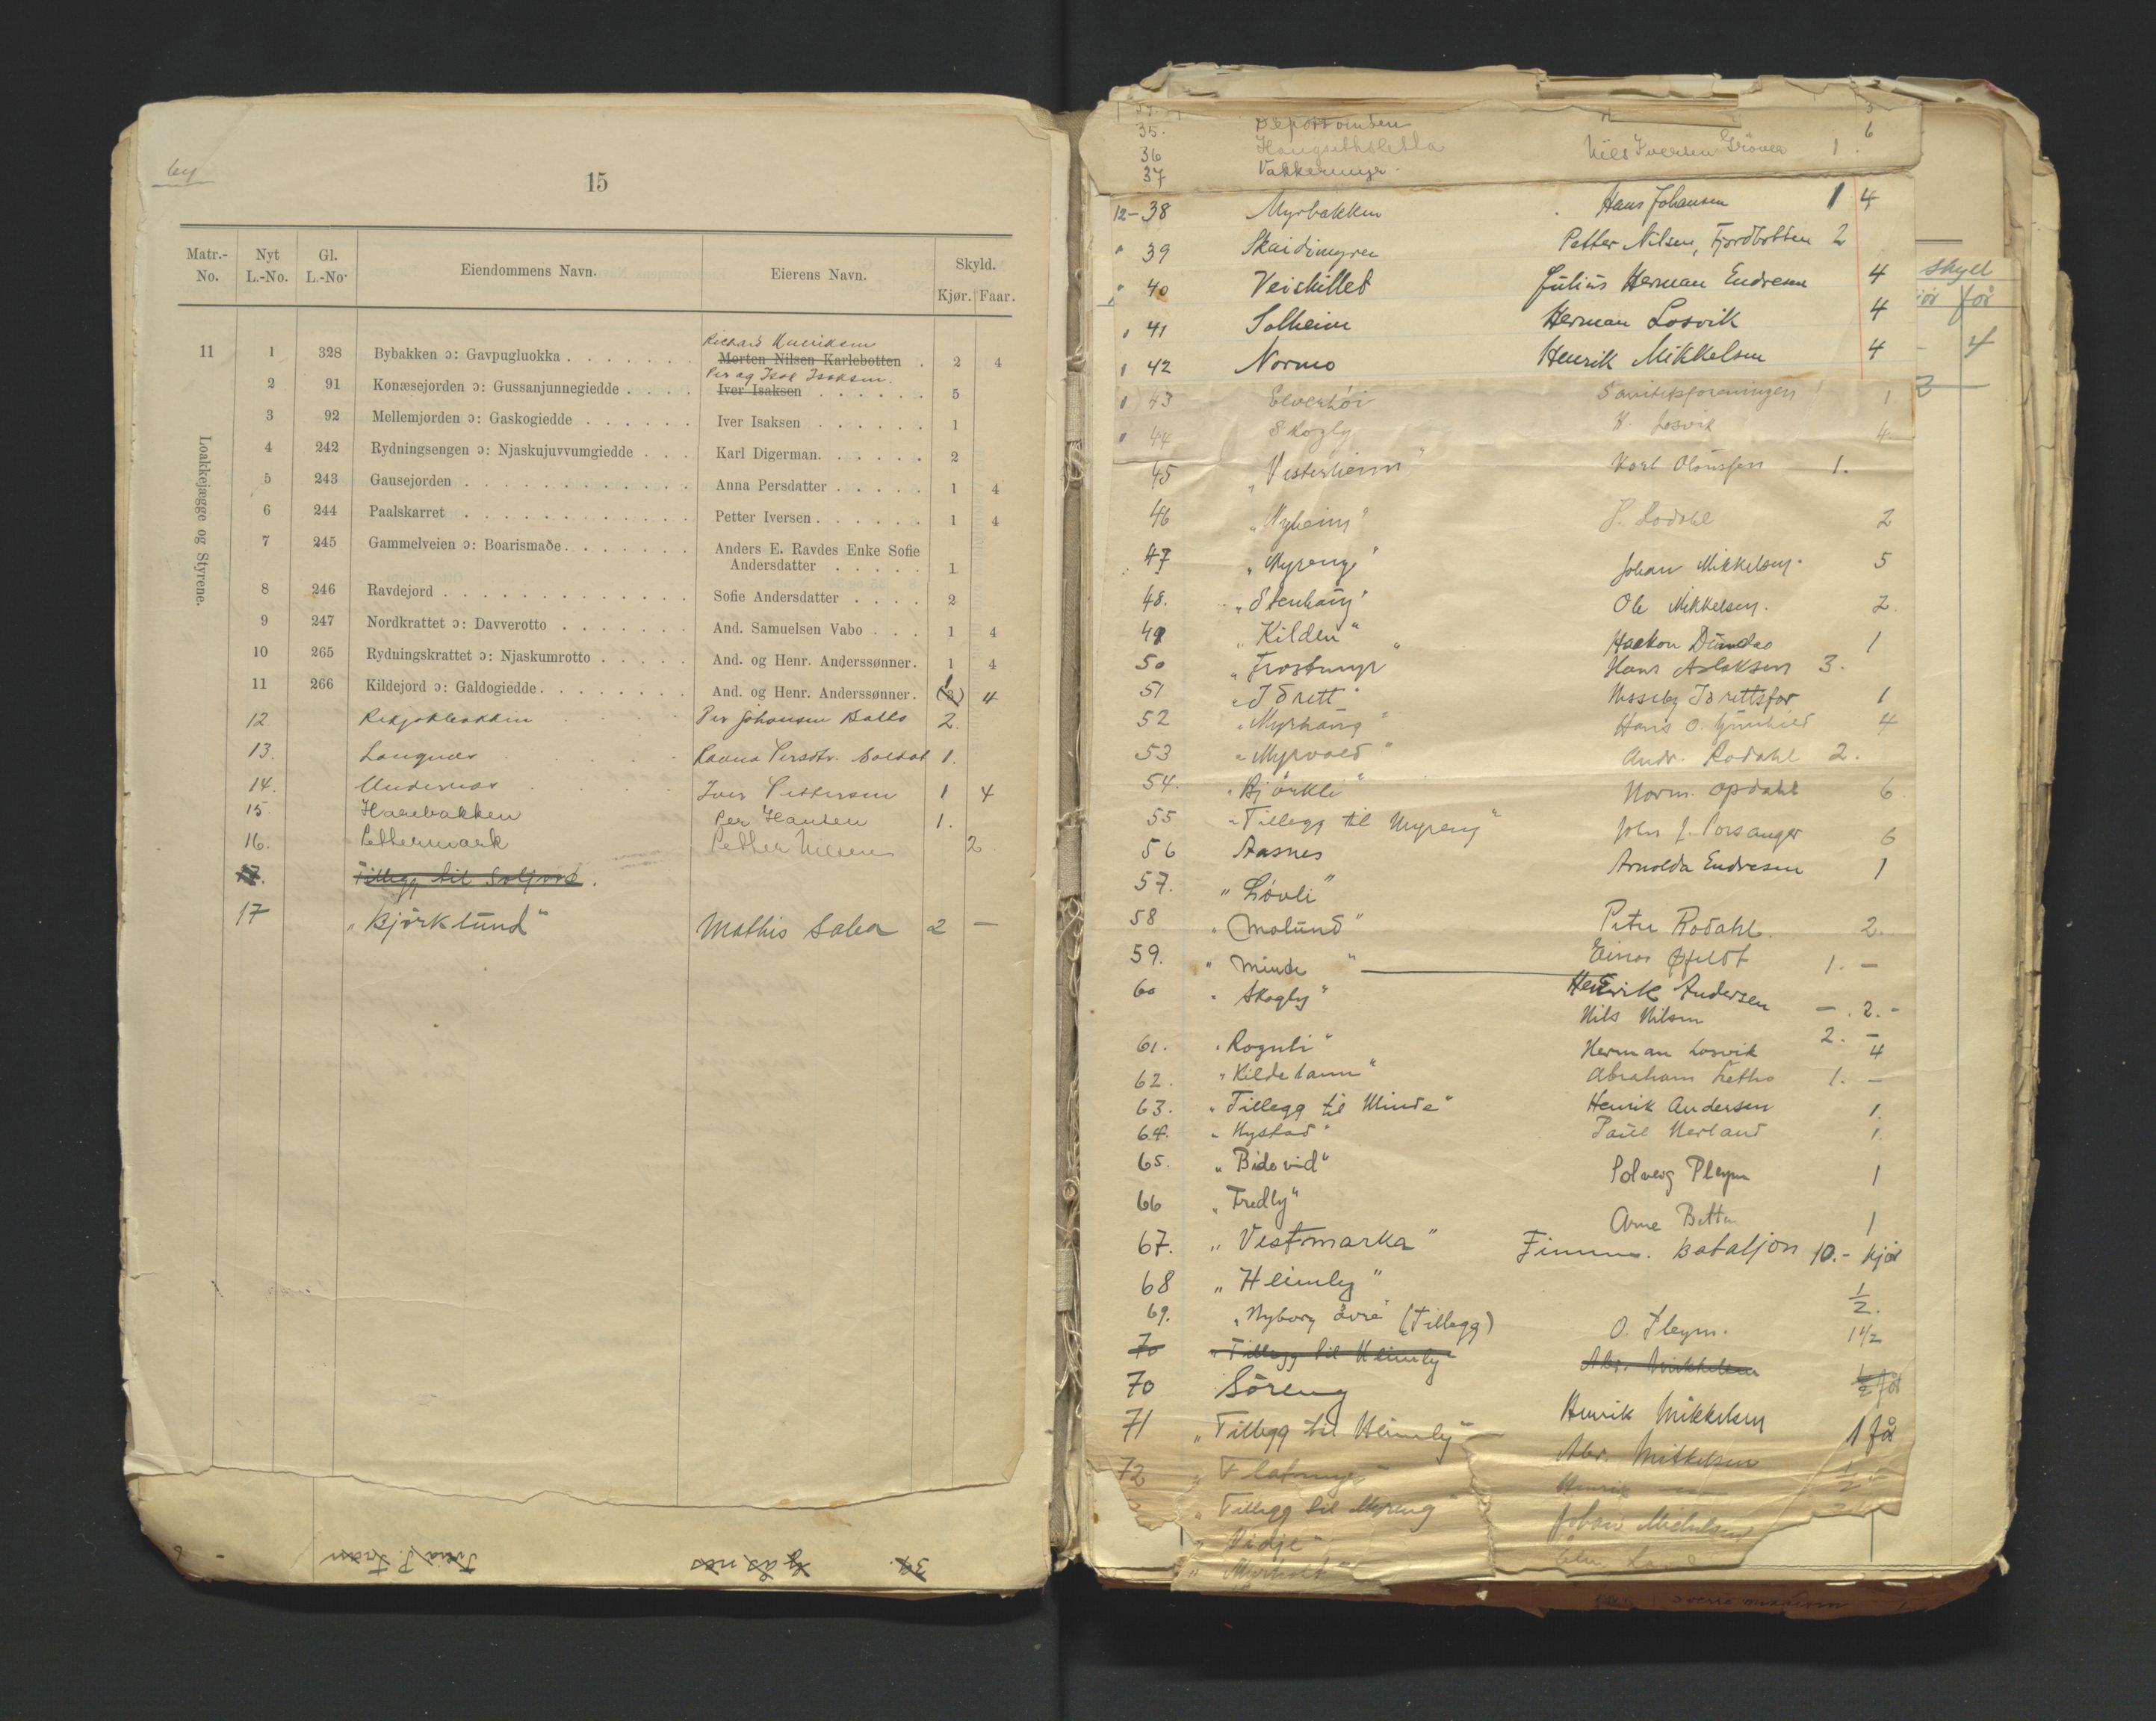 15
Matr.-No. Nyt L.-No. Gl. L.-No. Eiendommens Navn. Eierens Navn. Skyld.
Kjør. Faar.
Loakkejægge og Styrene.
Richard Henriksen
11 1 328 Bybakken ɔ: Gavpugluokka . . . . . . . Morten Nilsen Karlebotten . 2 4
Per og Isak Isaksen.
2 91 Konæsejorden ɔ: Gussanjunnegiedde . . . . Iver Isaksen . . . . . . 5
3 92 Mellemjorden ɔ: Gaskogiedde . . . . . . Iver Isaksen . . . . . . 1
4 242 Rydningsengen ɔ: Njaskujuvvumgiedde . . . Karl Digerman. . . . . . 2
5 243 Gausejorden . . . . . . . . . . . . Anna Persdatter . . . . . 1 4
6 244 Paalskarret . . . . . . . . . . . . Petter Iversen . . . . . . 1 4
7 245 Gammelveien ɔ: Boarismaðe. . . . . . . Anders E. Ravdes Enke Sofie
Andersdatter . . . . . 1
8 246 Ravdejord . . . . . . . . . . . . . Sofie Andersdatter . . . . 2
9 247 Nordkrattet ɔ: Davverotto . . . . . . . And. Samuelsen Vabo . . . 1 4
10 265 Rydningskrattet ɔ: Njaskumrotto . . . . . And. og Henr. Anderssønner. 1 4
11 266 Kildejord ɔ: Galdogiedde. . . . . . . . And. og Henr. Anderssønner. 1 4
12 Per Johansen Balto 2.
13. Langnes Ravna Persdtr. 1.
14. Iver Pettersen 1 4
15 Harebakken Per Hansen 1.
16. Pettermark Petter Nilsen 2
17. Tillegg til Soljord.
17 "Bjørklund" Mathis Saba 2 —
35.
36 Nils Iversen 1. 6
37 Vakkermyr.
12-38 Myrbakken Hans Johansen 1 4
" 39 Skaidimyren Petter Nilsen, Fjordbotten 2
" 40 Veiskillet Julius Herman Endresen 4
" 41 Solheim Herman Losvik 4
" 42 Normo Henrik Mikkelsen 4
" 43 Elverhöi Sanitetsforeningen 1
" 44 Skogly H. Losvik 4.
45 "Vesterheim" Karl Olaussen 1.
46 "Nyheim" P. Rodahl 2
47 "Myreng" Johan Mikkelsen. 5
48. "Stenhaug" Ole Mikkelsen. 2.
49 "Kilden" Haakon 1
50 "Frostmyr" Hans Aslaksen 3.
51 "Idrett" Nesseby Idrettsfor. 1
52 "Myrhaug" Hans O. 4
53 "Myrvold" Andr. Rodahl 2.
54. "Bjørkli" Norm. Opdahl 6
55 "Tillegg til Myreng" John J. Porsanger 6
56 Aasnes Arnolda Endresen 1
57. "Løvli"
58 "Molund" Peter Rodahl. 2.
59. "Minde" Einar Øfeldt 1. —
60 "Skogly" Henrik Andersen — . 2. -
Nils Nilsen 2. —
61. "Rognli" Herman Losvik 4
62. "Kildetann" Abraham 1. —
63. "Tillegg til Minde" Henrik Andersen 1.
64. "Nystad" Paul Nerland 1.
65. "Bidevid" Solveig Pleym 1
66 "Fredly" Arne 1
67. "Vestmarka" Finnm. Bataljon 10.- kjør
68 "Heimly" 1/2.
69. "Nyborg övre" (Tillegg) O. Pleym. 1 1/2
70 "Tillegg til Heimly" Abr. Mikkelsen 1/2 får
70 Söreng Henrik Mikkelsen 1 får
71 "Tillegg til Heimly" Abr. Mikkelsen 1/2
72 "Flatmyr" Henrik —
"Tillegg til Myreng" Johan Mikkelsen
"Vidje"
"Myrholt"
skyld
kjør får
- 4
2 —